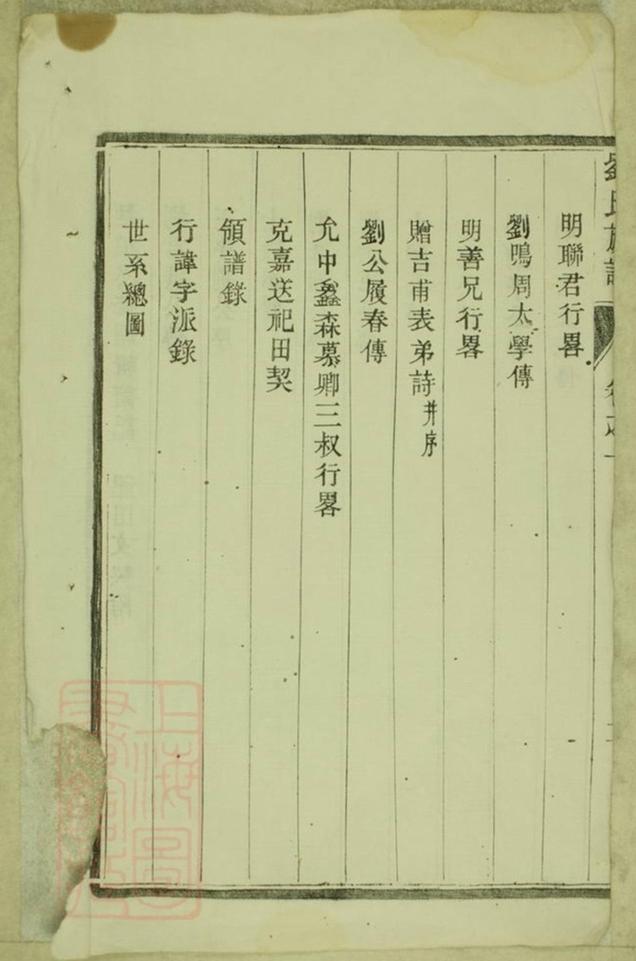 劉氏族譜 卷之一
明聯君行畧
劉鳴周太學傳
明善兄行畧
贈吉甫表弟詩并序
劉公履春傳
允中鑫森慕卿三叔行畧
克嘉送祀田契
領譜錄
行諱字派錄
世系總圖
上海圖